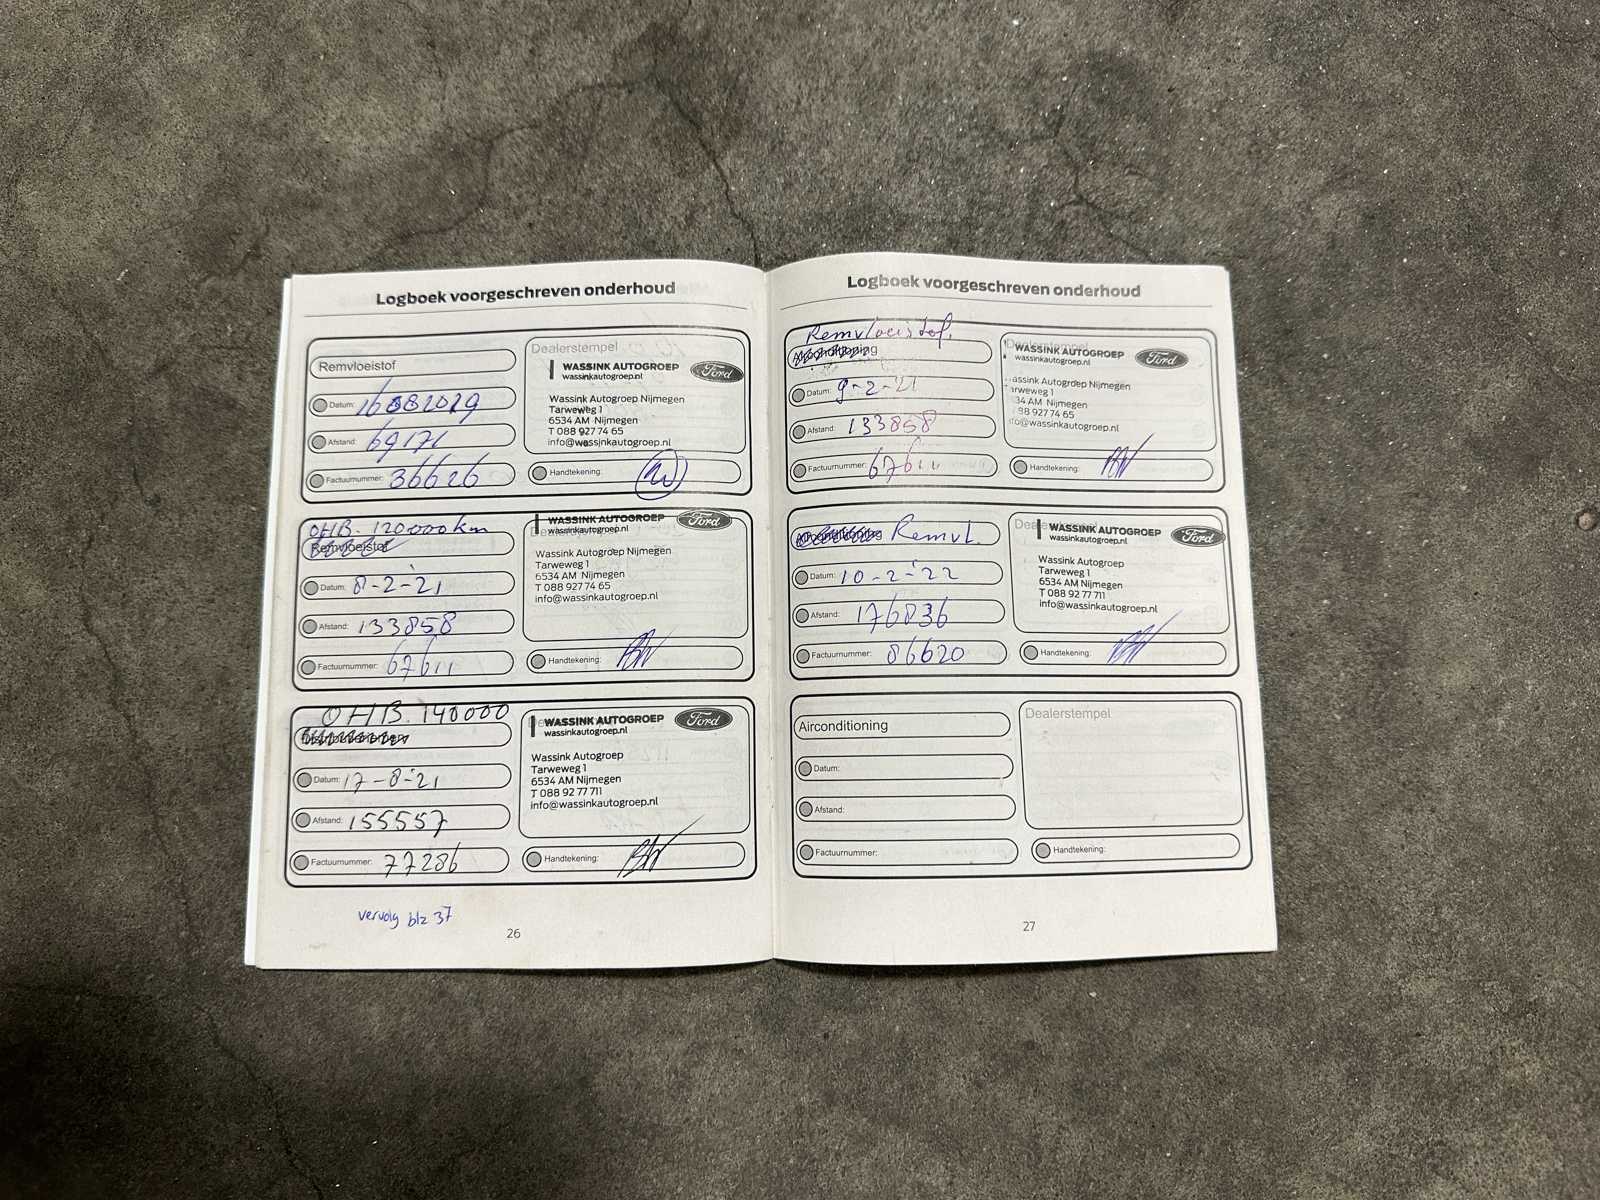 Logboek voorgeschreven onderhoud
Remvloeistof
Datum:
Afstand: 69171
Factuurnummer: 36626
Dealerstempel
WASSINK AUTOGROEP
wassinkautogroep.nl
Ford
Wassink Autogroep Nijmegen
Tarweweg 1
6534 AM Nijmegen
T 088 927 74 65
info@wassinkautogroep.nl
Handtekening:
OHB. 120000km
Remvloeistof
Datum: 8-2-'21
Afstand: 133858
Factuurnummer: 67611
WASSINK AUTOGROEP
wassinkautogroep.nl
Ford
Wassink Autogroep Nijmegen
Tarweweg 1
6534 AM Nijmegen
T 088 927 74 65
info@wassinkautogroep.nl
Handtekening:
OHB. 140000
Datum: 17-8-'21
Afstand: 155557
Factuurnummer: 77286
WASSINK AUTOGROEP
wassinkautogroep.nl
Ford
Wassink Autogroep
Tarweweg 1
6534 AM Nijmegen
T 088 92 77 711
info@wassinkautogroep.nl
Handtekening:
vervolg blz 37
26
Logboek voorgeschreven onderhoud
Remvloeistof.
Airconditioning
Datum: 9-2-'21
Afstand: 133858
Factuurnummer: 67611
Dealerstempel
WASSINK AUTOGROEP
wassinkautogroep.nl
Ford
assink Autogroep Nijmegen
arweweg 1
34 AM Nijmegen
88 927 74 65
fo@wassinkautogroep.nl
Handtekening:
Airconditioning Remvl.
Datum: 10-2-'22
Afstand: 176836
Factuurnummer: 86620
WASSINK AUTOGROEP
wassinkautogroep.nl
Ford
Wassink Autogroep
Tarweweg 1
6534 AM Nijmegen
T 088 92 77 711
info@wassinkautogroep.nl
Handtekening:
Airconditioning
Datum:
Afstand:
Factuurnummer:
Dealerstempel
Handtekening:
27